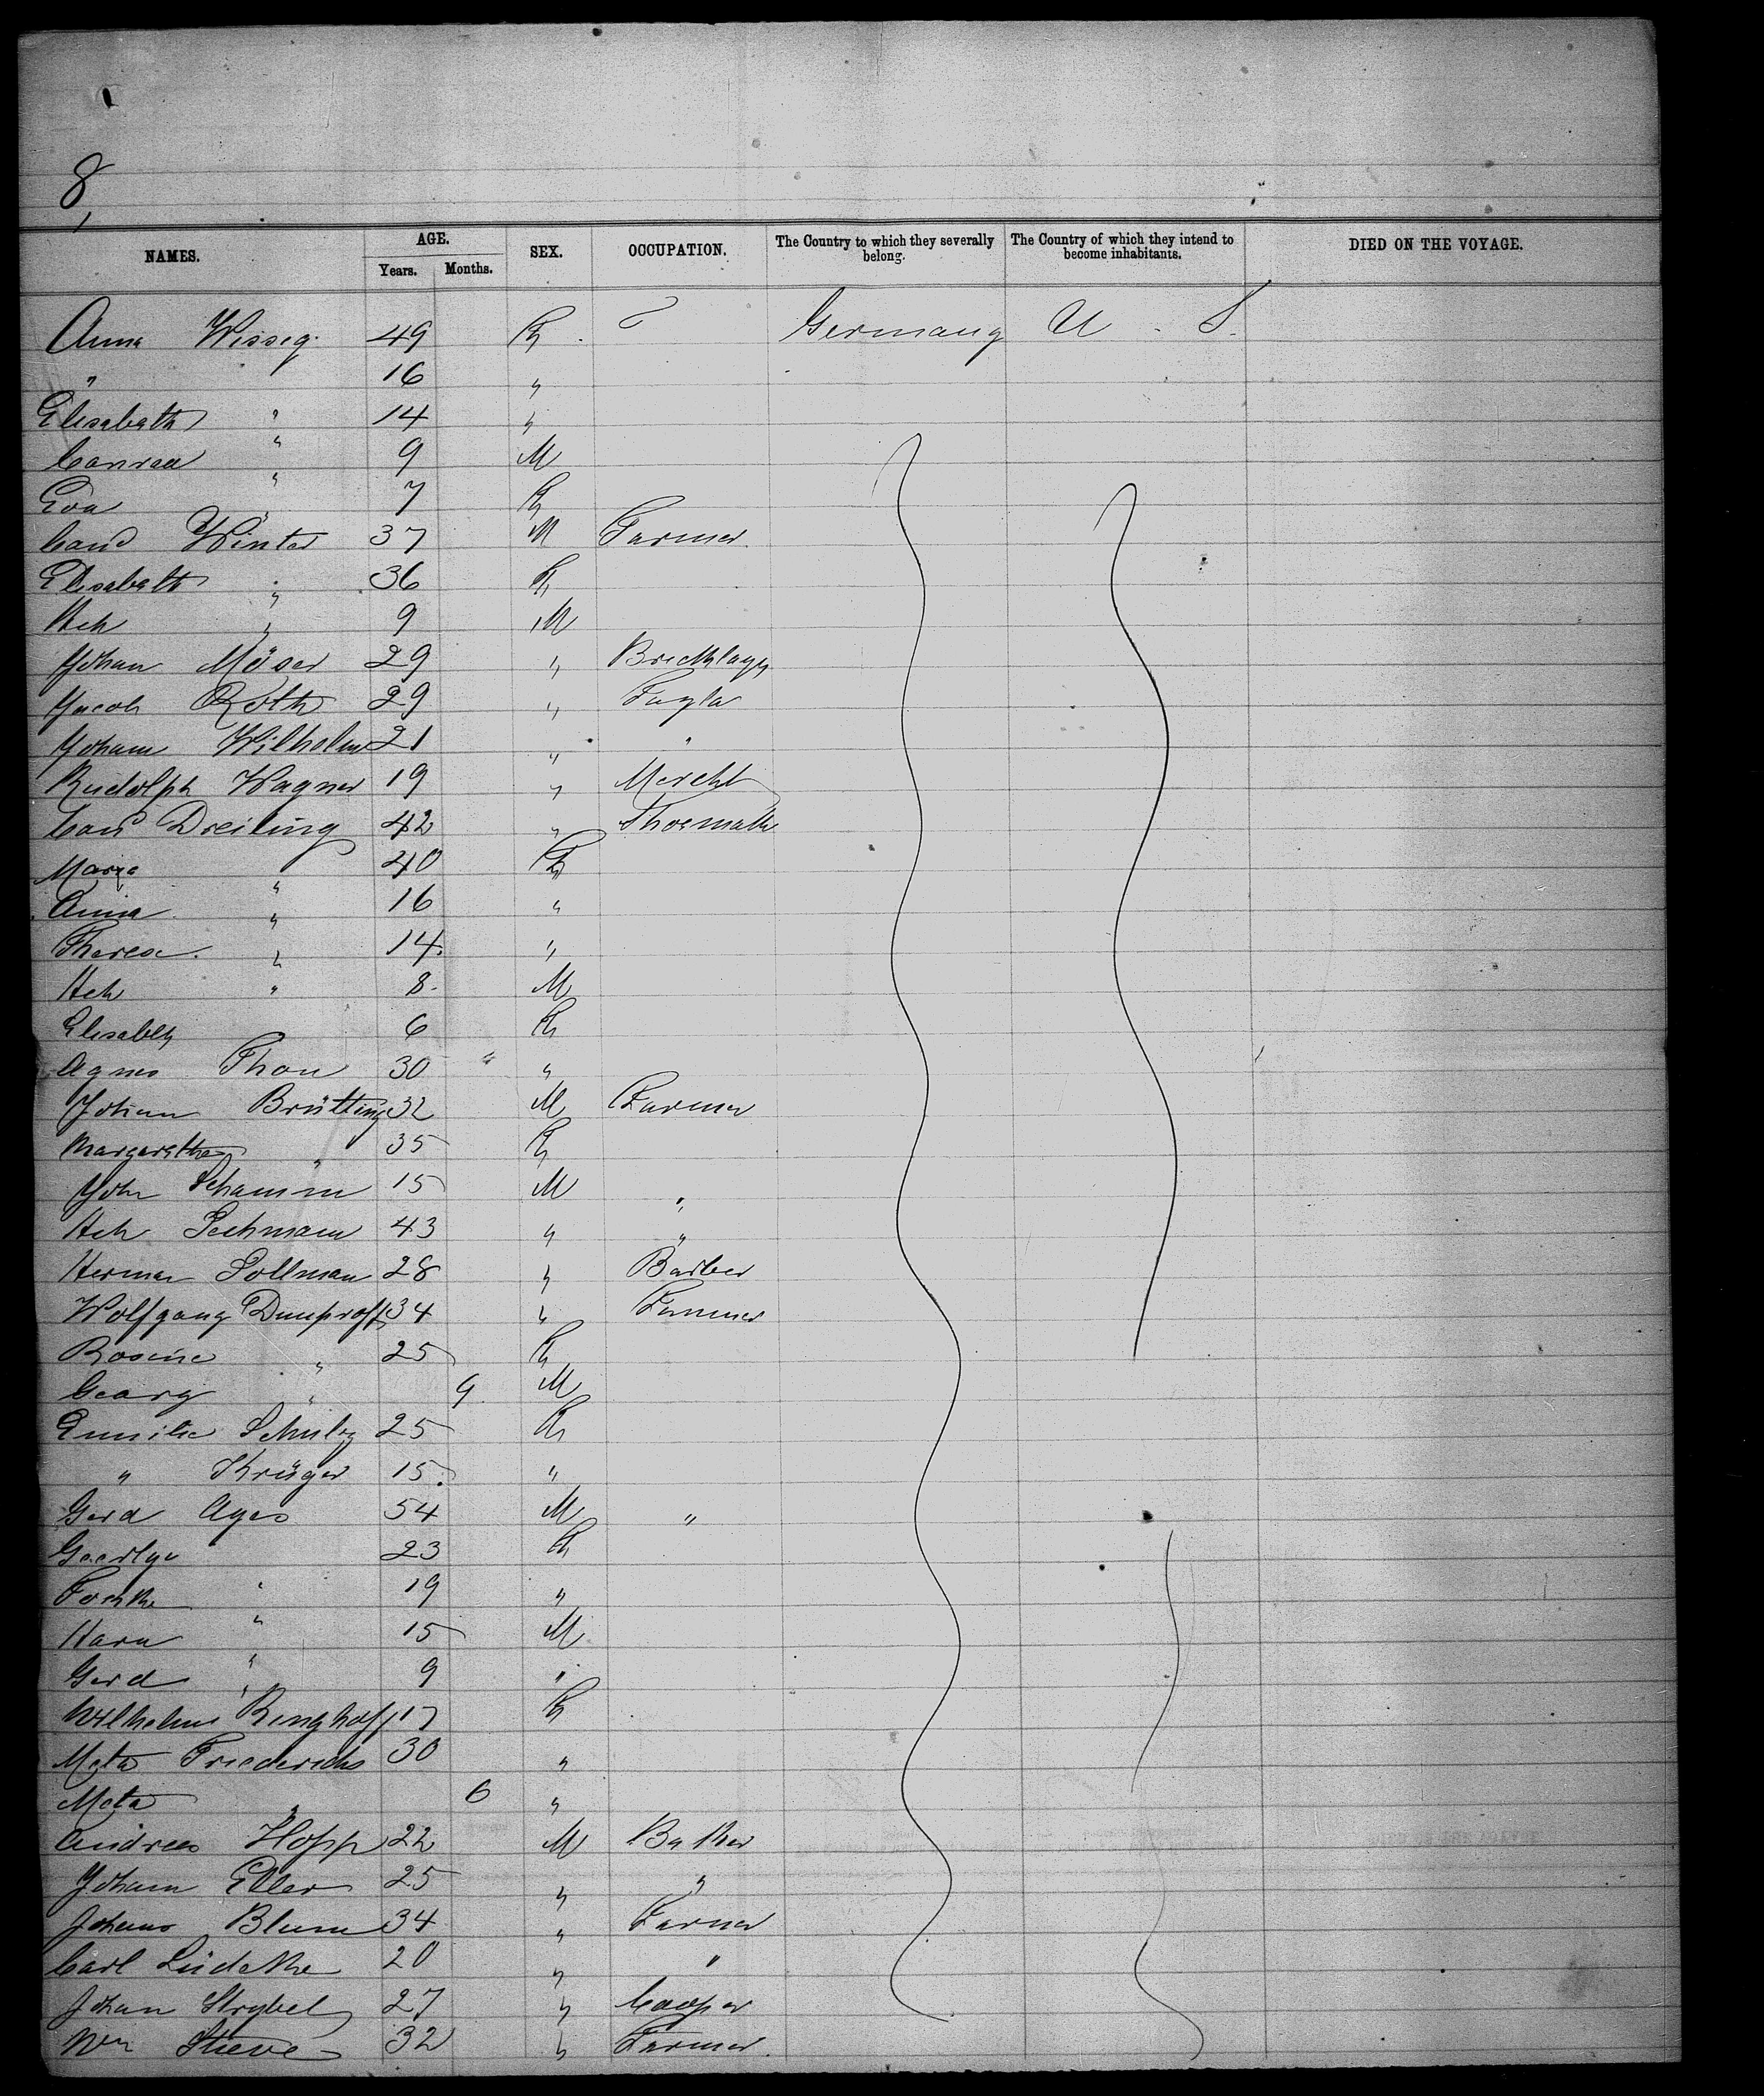 8
NAMES. AGE. Years. Months. SEX. OCCUPATION. The Country to which they severally belong. The Country of which they intend to become inhabitants. DIED ON THE VOYAGE.
Anna Wisseg. 49 F. Germany U. S.
" 16 "
Elisabeth " 14 "
Conrad " 9 M
Eva " 7 F
Winter 37 M Farmer
Elisabeth " 36 F
Hch " 9 M
Johan Möser 29 "
Jacob Roth 29 "
Johann Wilhelm 21 " "
Rudolph Wagner 19 " Mercht
Dreiling 42 "
Marie " 40 F
Anna " 16 "
Theresa. " 14. "
Hch " 8. M
Elisabeth 6 F
Agnes Thon 30 " "
Johann Brütting 32 M Farmer
Margarethe " 35 F
John Schamm 15 M "
Hch 43 " "
Herman Sollman 28 " Barber
Wolfgang 34 " Farmer
Rosine " 25 F
Georg " 9 M
Emilie Schulz 25 F
" Krüger 15. "
Gerd 54 M "
23 F
" 19 "
Harm " 15 M
Gerd " 9 "
Wilhelm Ringhoff 17 F
Meta Friederichs 30 "
Meta " 6 "
Andreas Hopp 22 M Baker
Johann Eller 25 " "
Johann Blum 34 " Farmer
Carl Lüdeke 20 " "
Johan Strybel 27 " Cooper
Wm Stieve 32 " Farmer.